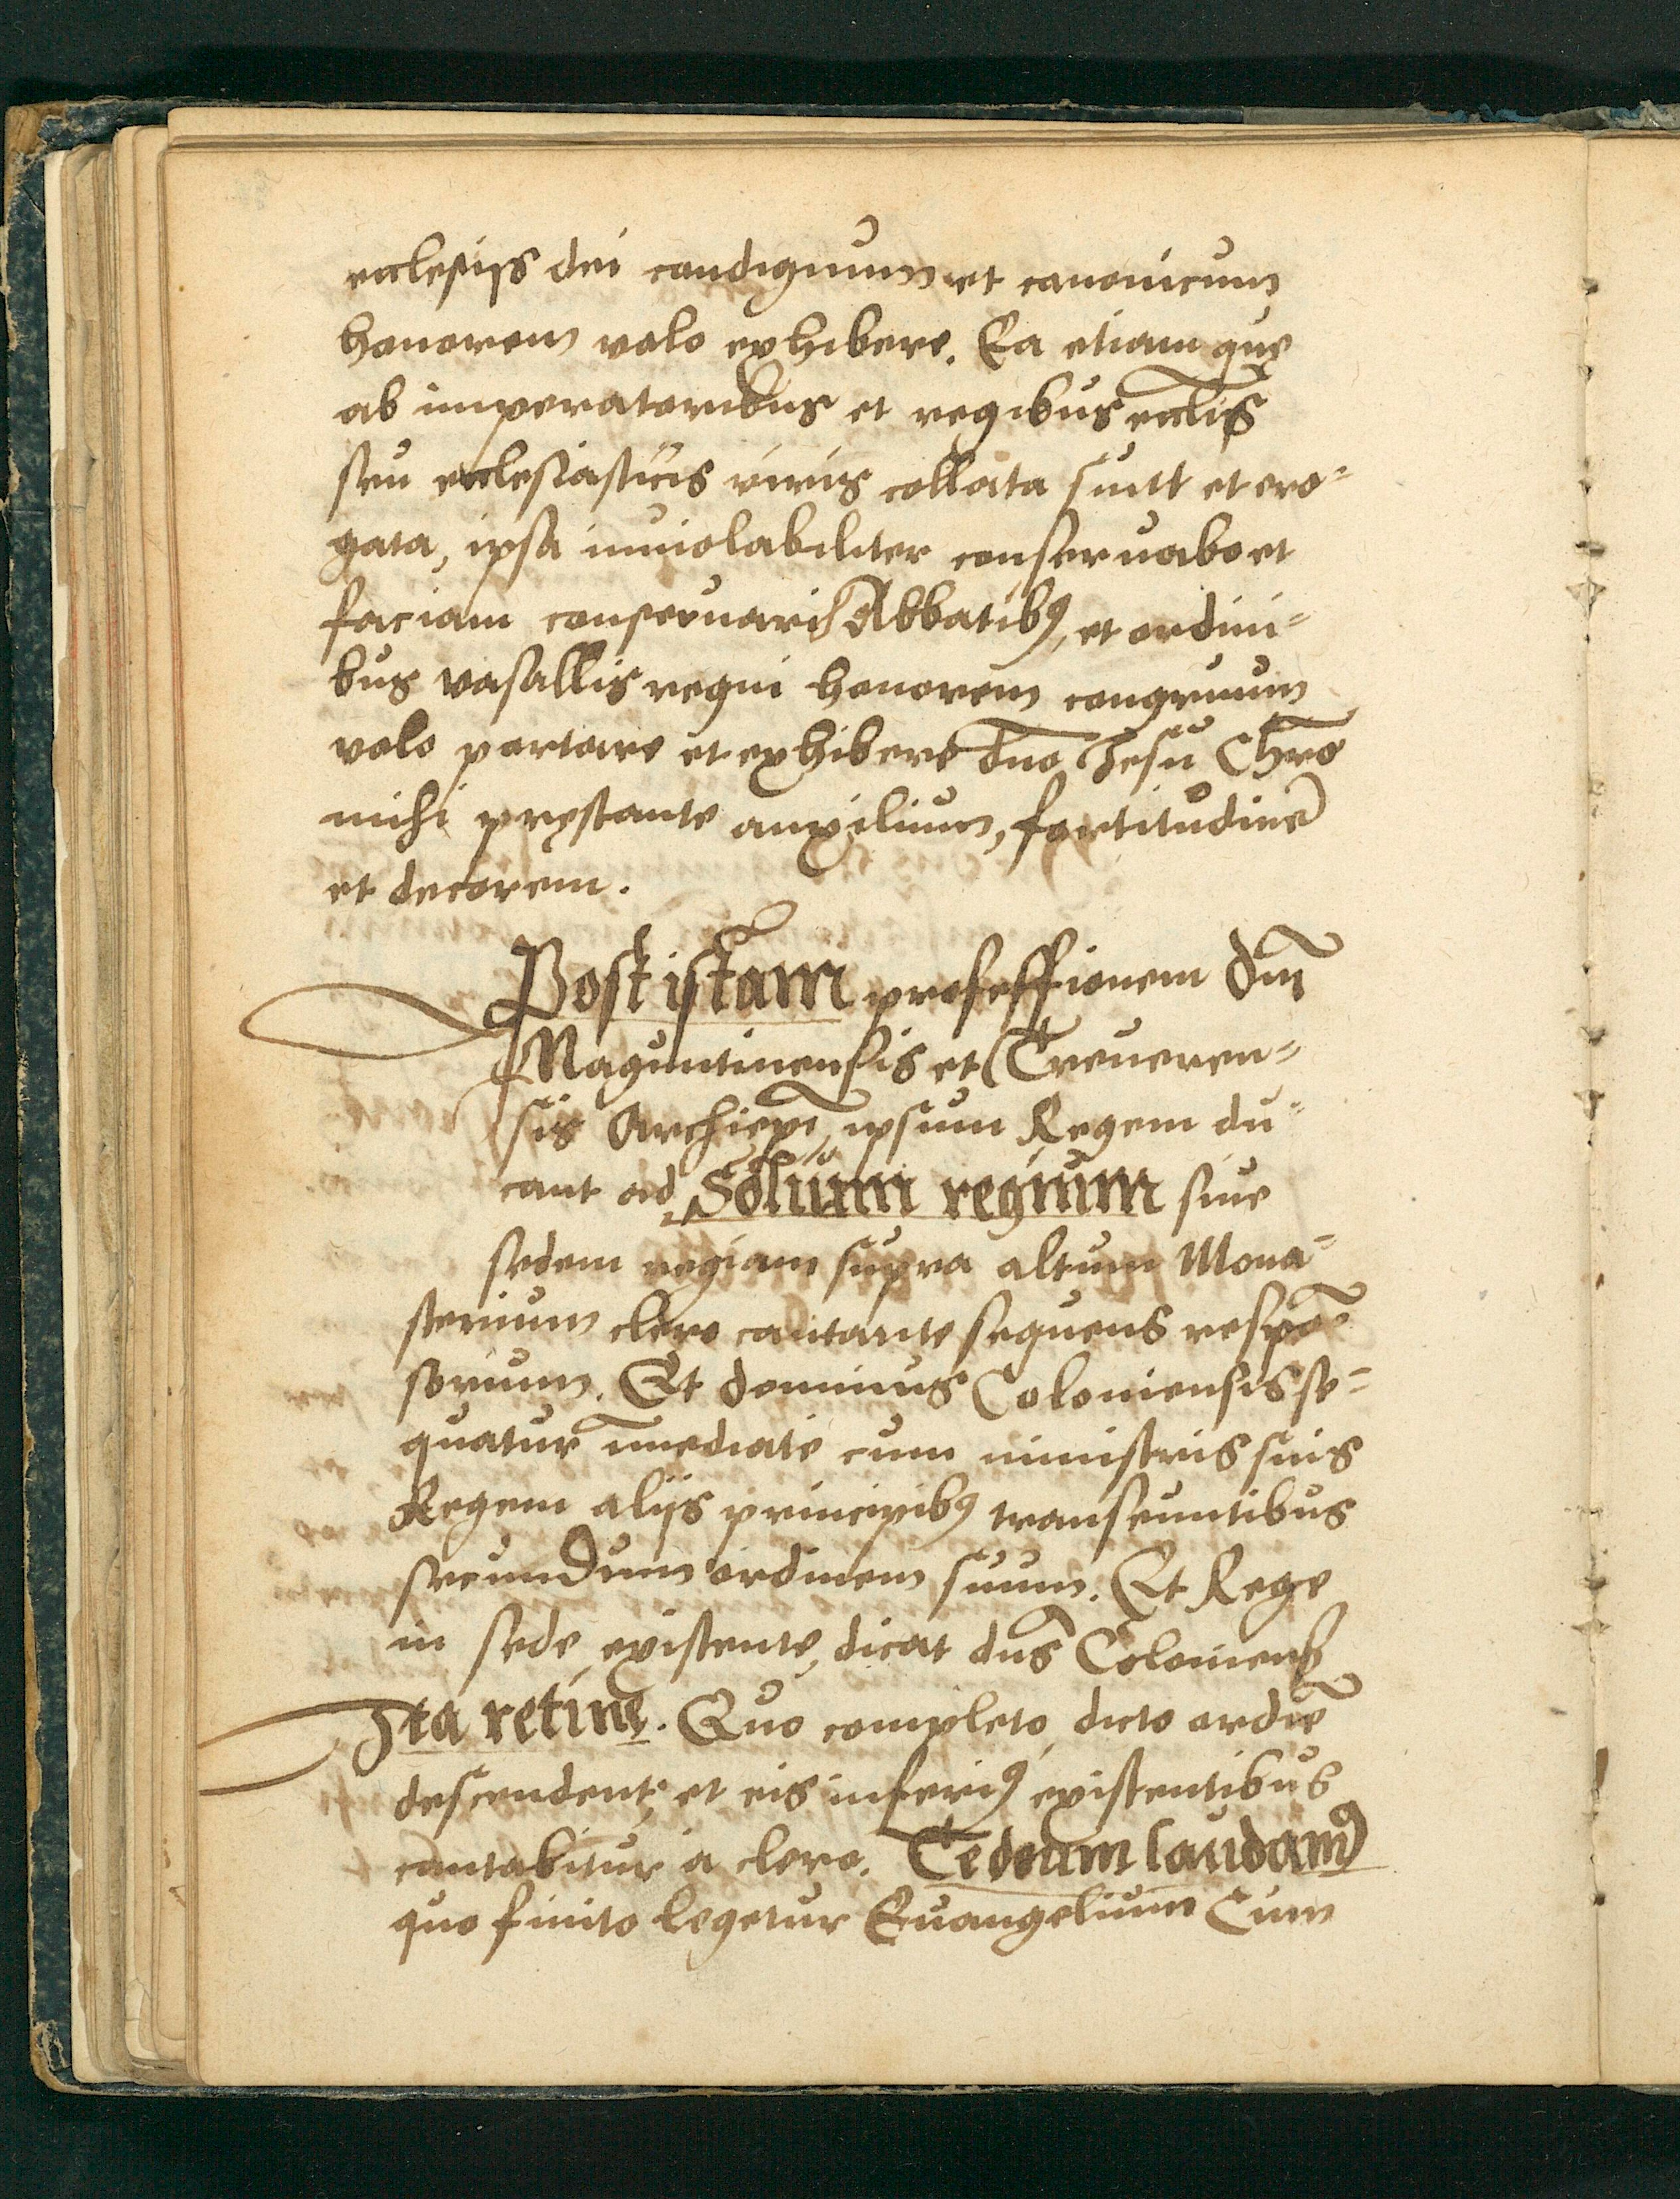 ecclesijs dei condignum et canonicum
honorem volo exhibere. Ea etiam que
ab imperatoribus et regibus eccl̄is
seu ecclesiasticis viris collata sunt et ero⸗
gata, ipsa inuiolabiliter conseruabo et
faciam conseruari Abbatibꝰ, et ordini⸗
bus vasallis regni honorem congruum
volo portare et exhibere dn̄o Jesu Chr̄o
mihi pręstante auxilium, fortitudinē
et decorem.
Post istam professionem dn̄i
Maguntinensis et Treueren⸗
sis Archiep̄i, ipsum Regem du⸗
cant ad Solium regium siue
sedem regiam supra altum Mona⸗
sterium clero cantante sequens respō⸗
sorium. Et dominus Coloniensis se⸗
quatur īmediate cum ministris suis
Regem alijs principibꝰ transeuntibus
secundum ordinem suum. Et Rege
in sede existente, dicat dn̄s Coloniens̄
Ita retine. Quo completo, dicto ordiē
descendent, et eis inferiꝰ existentibus
cantabitur a clero. Te deum laudamꝰ
quo finito legetur Euangelium Cum